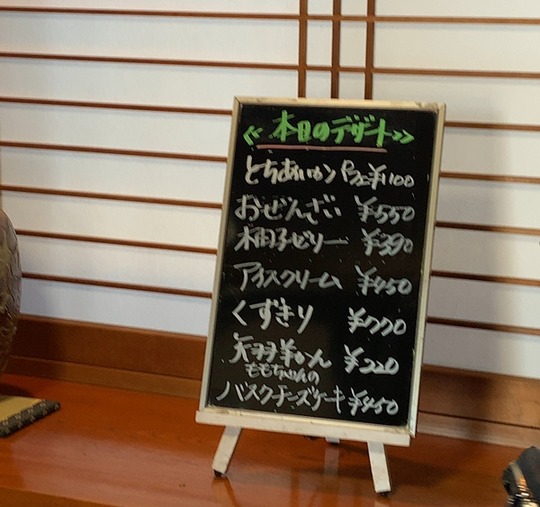 << 本日のデザート >>
とちあいか パフェ ¥1100
おぜんざい ¥550
柚子ゼリー ¥390
アイスクリーム ¥450
くずきり ¥770
羊かん ¥220
ももちゃんの
バスクチーズケーキ ¥450